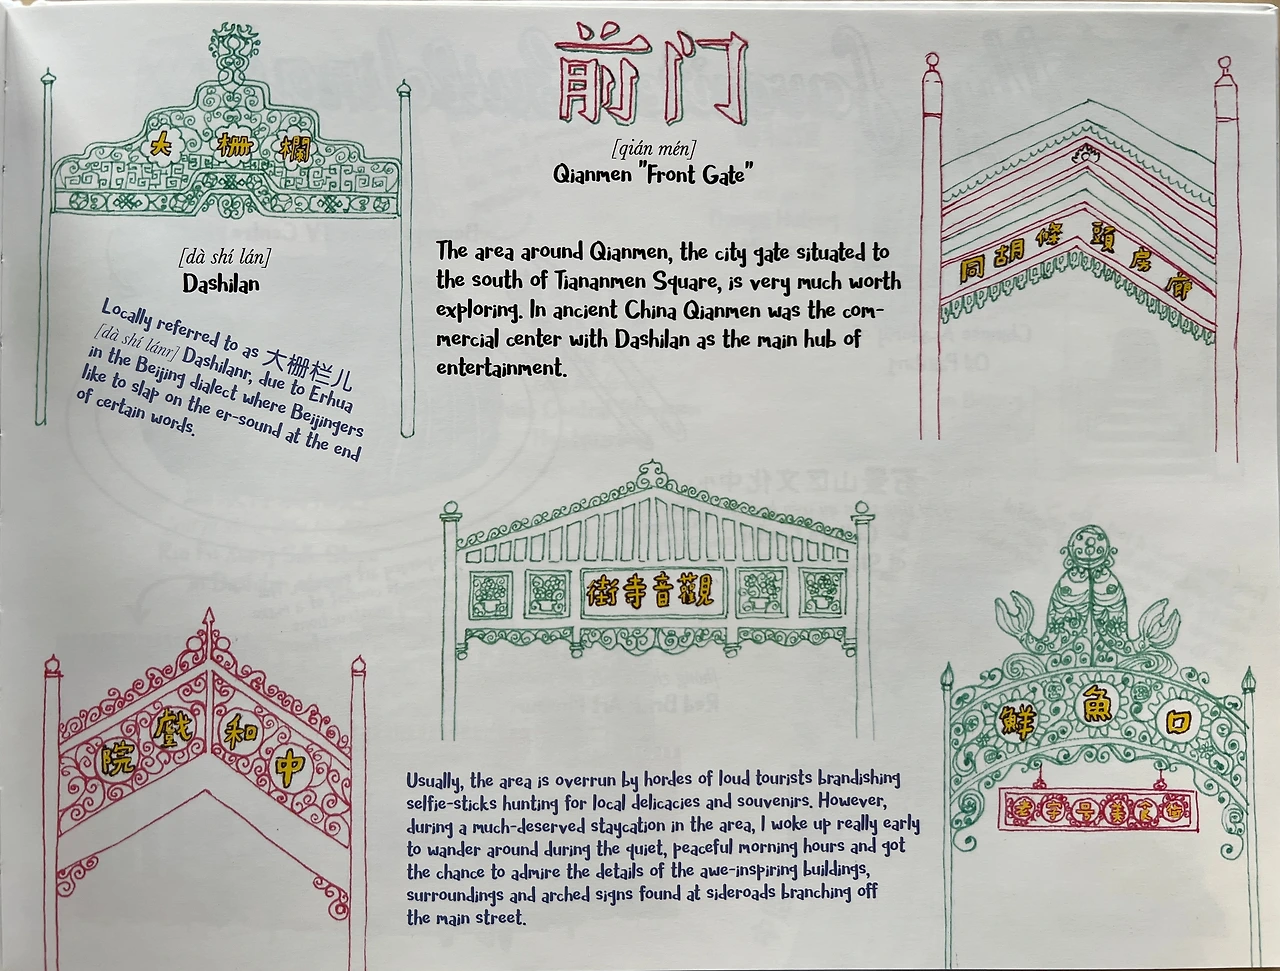 前门
[qián mén]
Qianmen "Front Gate"
大栅欄
[dà shí lán]
Dashilan
Locally referred to as 大栅栏儿
[dà shí lánr] Dashilanr, due to Erhua
in the Beijing dialect where Beijingers
like to slap on the er-sound at the end
of certain words.
The area around Qianmen, the city gate situated to
the south of Tiananmen Square, is very much worth
exploring. In ancient China Qianmen was the com-
mercial center with Dashilan as the main hub of
entertainment.
同胡條頭房廊
街寺音觀
院戲和中
鮮魚口
老字号美食街
Usually, the area is overrun by hordes of loud tourists brandishing
selfie-sticks hunting for local delicacies and souvenirs. However,
during a much-deserved staycation in the area, I woke up really early
to wander around during the quiet, peaceful morning hours and got
the chance to admire the details of the awe-inspiring buildings,
surroundings and arched signs found at sideroads branching off
the main street.